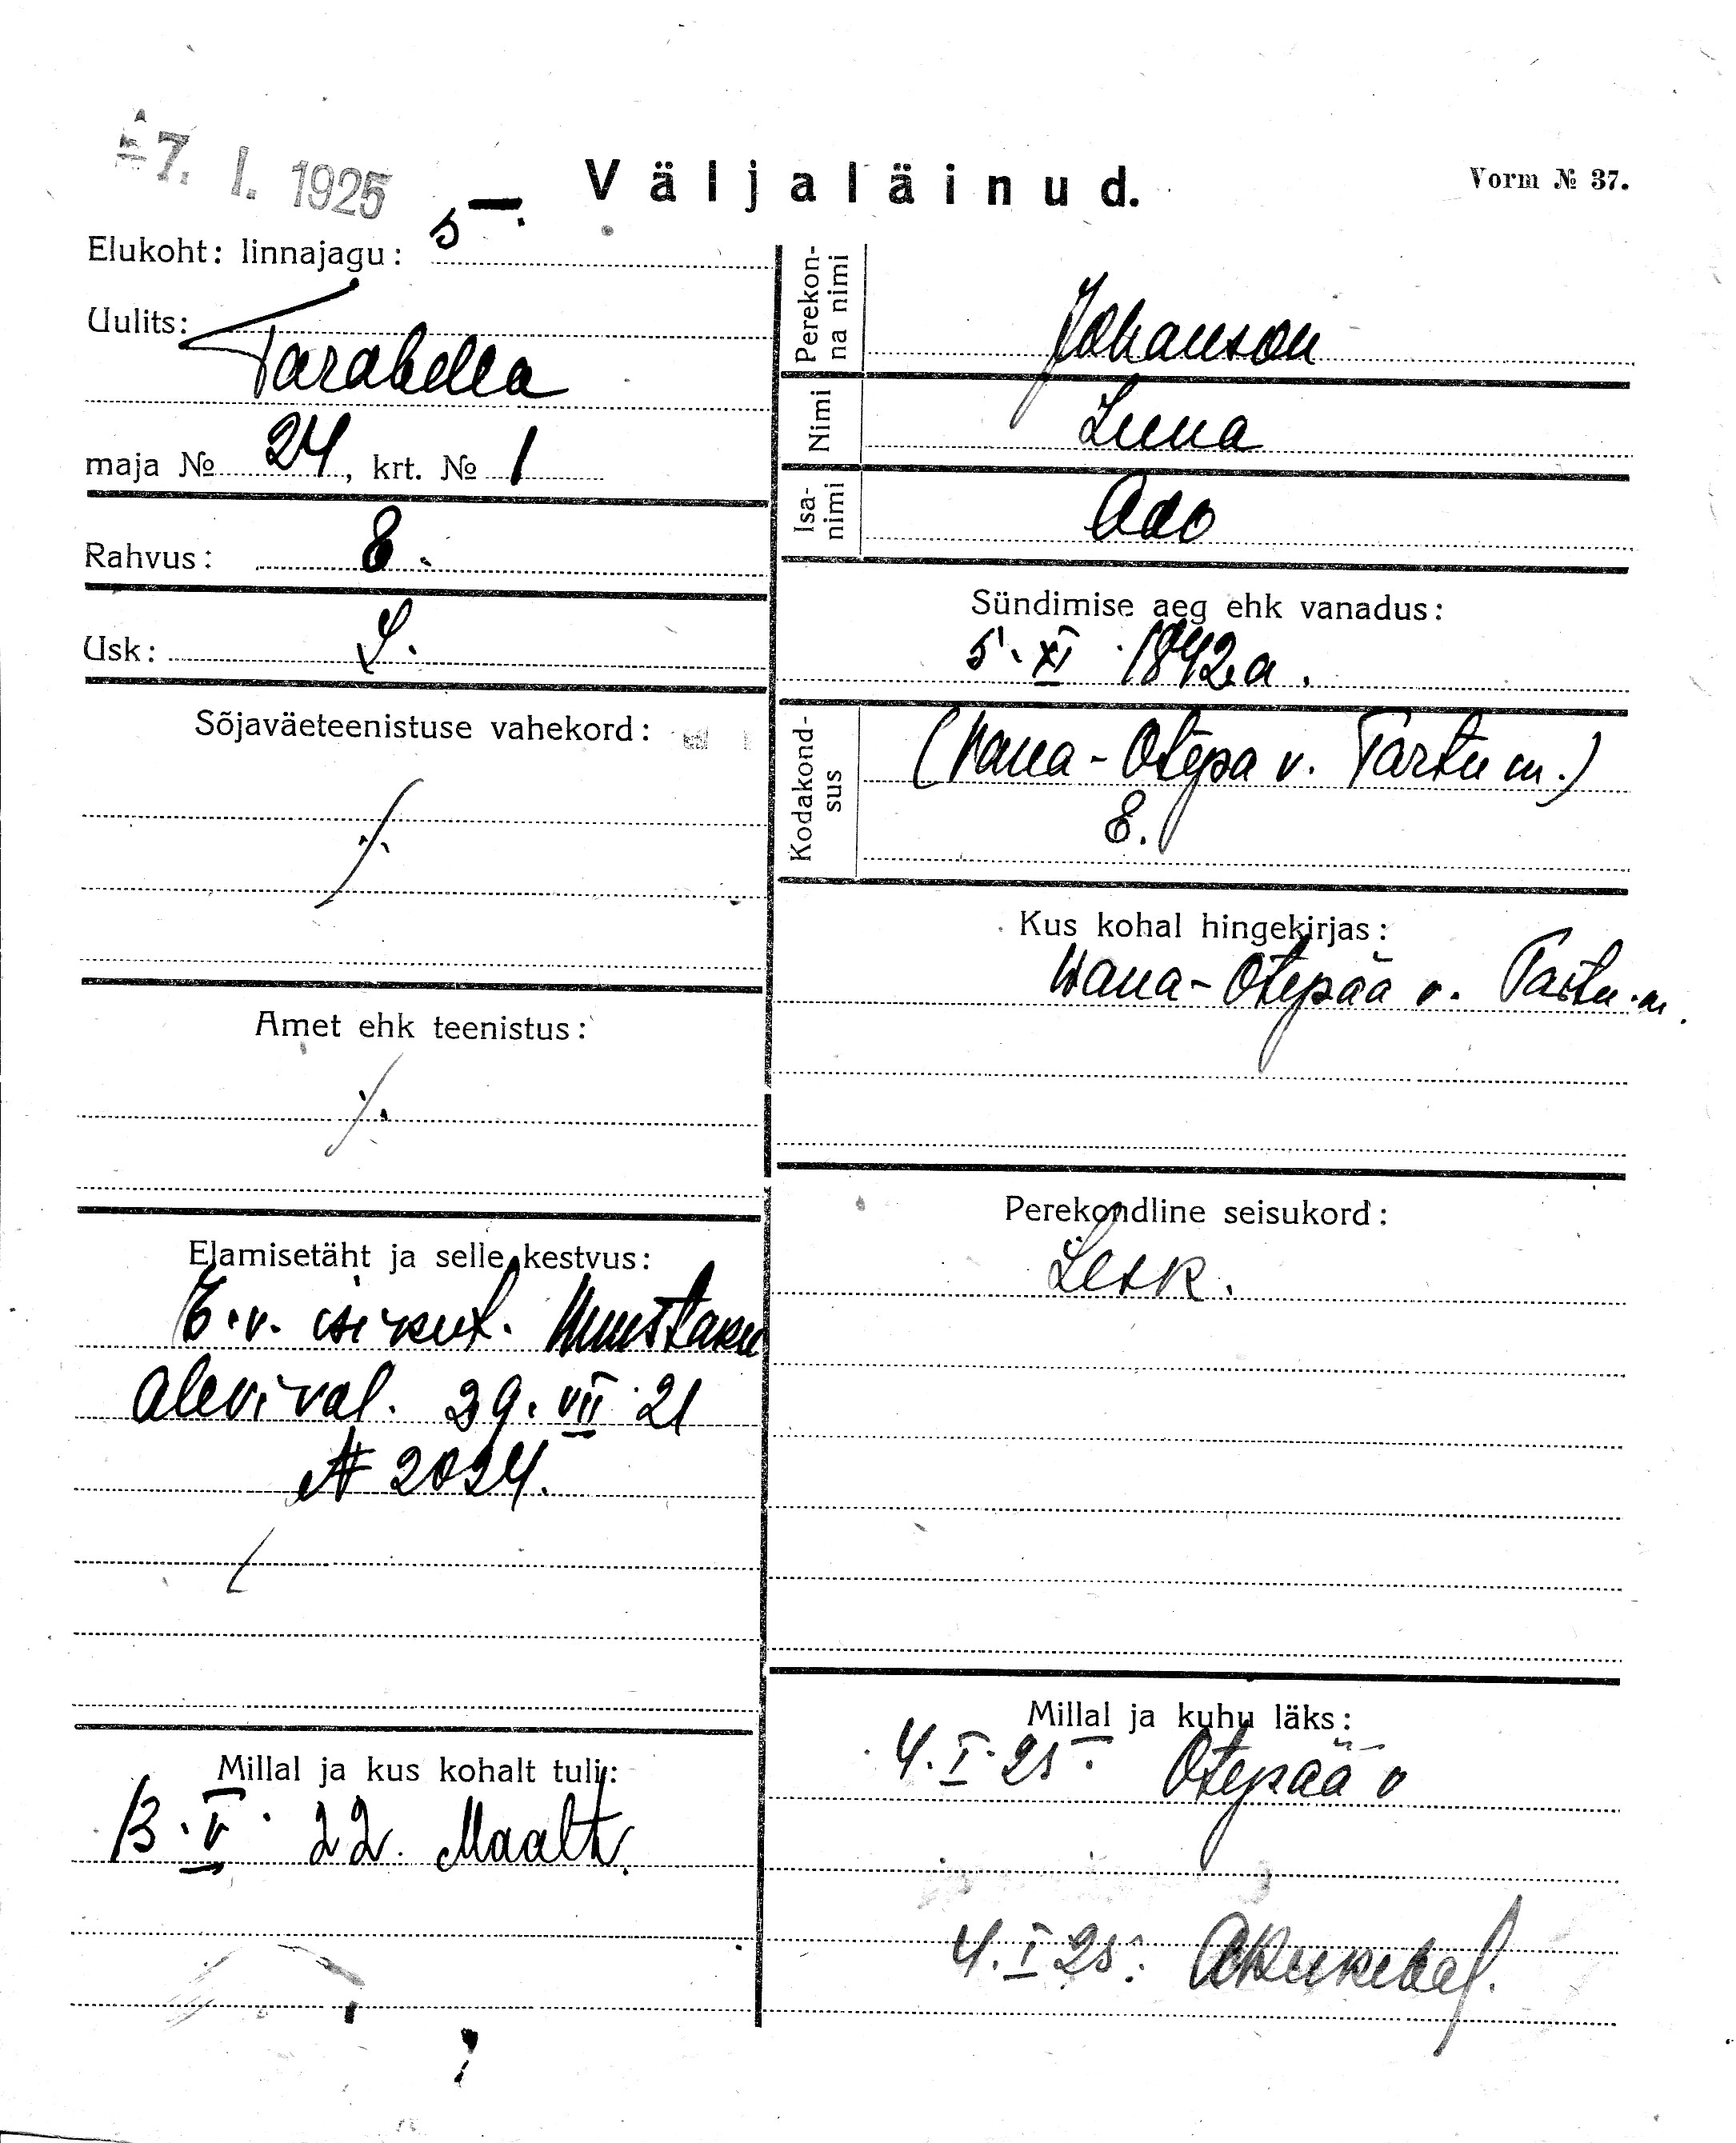 7. I. 1925
Väljaläinud.
Vorm № 37.
Elukoht: linnajagu: 5
Uulits:
Tarabella
maja № 24, krt. № 1
Rahvus: E.
Usk: L.
Sõjaväeteenistuse vahekord:
Amet ehk teenistus:
Elamisetäht ja selle kestvus:
E.v. isikut. Mustaku
alevival. 29. VII 21
№ 2024.
Millal ja kus kohalt tuli:
13. V. 22. Maalt.
Perekonna nimi Johanson
Nimi Leena
Isanimi Ado
Sündimise aeg ehk vanadus:
5. XI 1842.a.
Kodakondsus (Wana-Otepa v. Tartu m.)
E.
Kus kohal hingekirjas:
Wana-Otepää v. Tartu m.
Perekondline seisukord:
Lesk.
Millal ja kuhu läks:
4. I. 25. Otepää v
4. I 25.